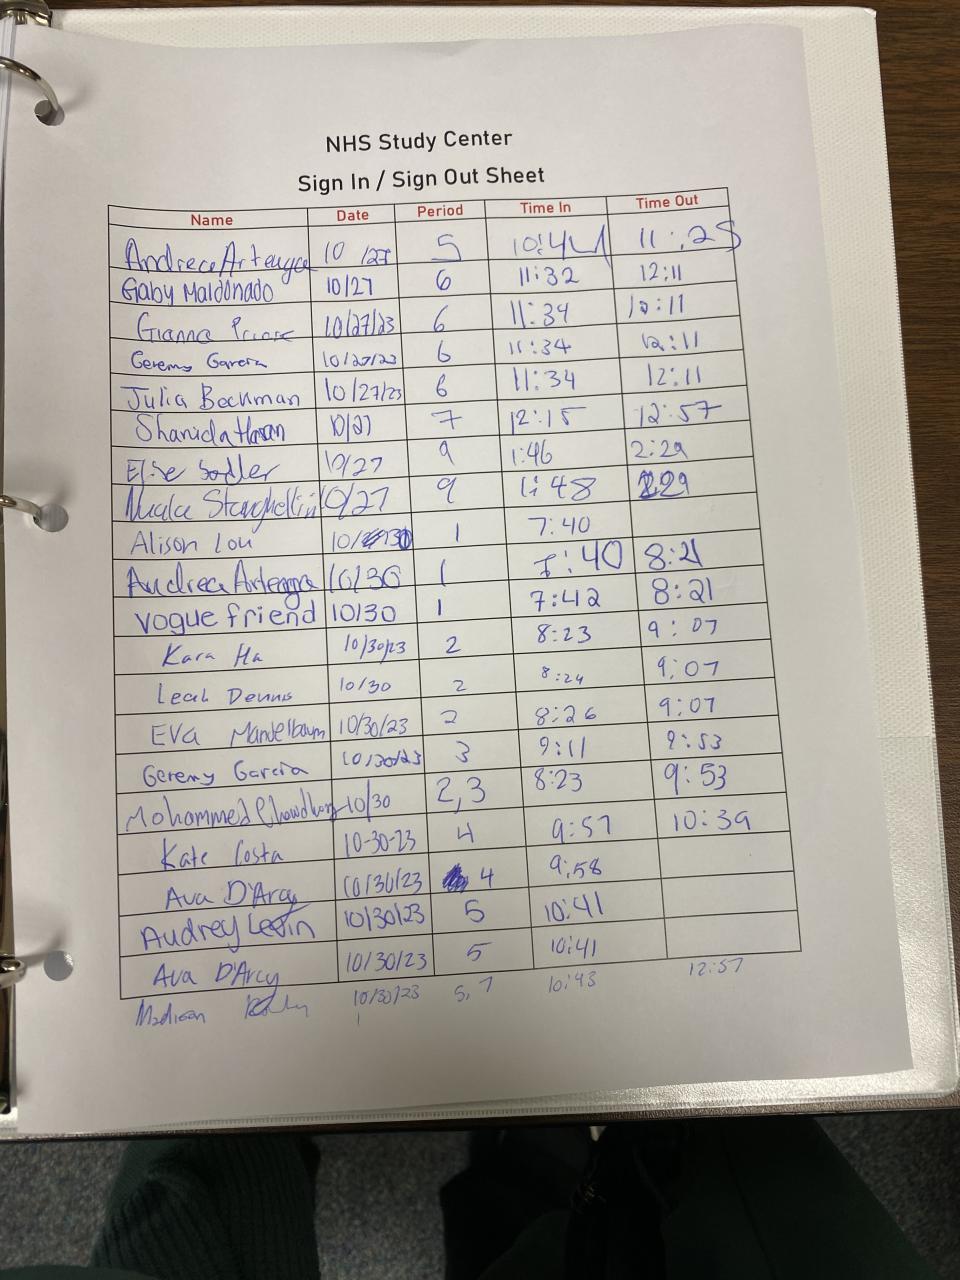 NHS Study Center
Sign In / Sign Out Sheet
Name Date Period Time In Time Out
Andrea Arteaga 10/27 5 10:44 11:25
Gaby Maldonado 10/27 6 11:32 12:11
Gianna 10/27/23 6 11:34 12:11
Geremy Garcia 10/27/23 6 11:34 12:11
Julia Beckman 10/27/23 6 11:34 12:11
Shanida Hasan 10/27 7 12:15 12:57
Elise Sadler 10/27 9 1:46 2:29
Nuala 10/27 9 1:48 2:29
Alison Lou 10/30 1 7:40
Andrea Arteaga 10/30 1 7:40 8:21
vogue friend 10/30 1 7:42 8:21
Kara Ha 10/30/23 2 8:23 9:07
Leah Dennis 10/30 2 8:24 9:07
EVa Mandelbaum 10/30/23 2 8:26 9:07
Geremy Garcia 10/30/23 3 9:11 9:53
Mohammed Chowdhury 10/30 2,3 8:23 9:53
Kate Costa 10-30-23 4 9:57 10:39
Ava D'Arcy 10/30/23 4 9:58
Audrey Levin 10/30/23 5 10:41
Ava D'Arcy 10/30/23 5 10:41
Madison 10/30/23 5,7 10:43 12:57